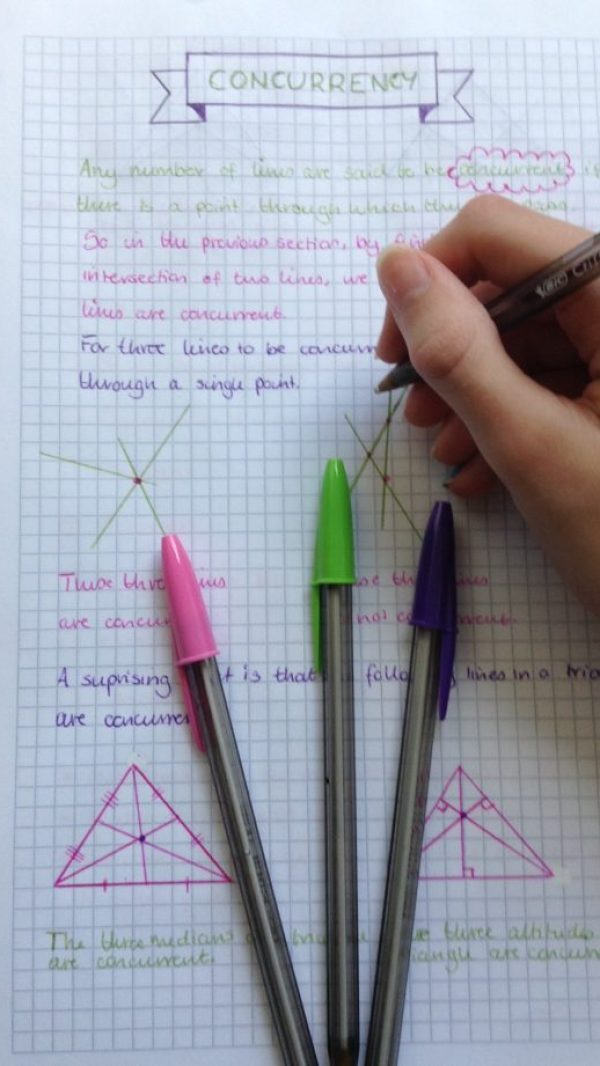 CONCURRENCY
Any number of lines are said to be concurrent
there is a point through which they
So in the previous section, by
intersection of two lines, we
lines are concurrent.
For three lines to be concurr
through a single point.
BIC
These three
are concu
not co
A suprising is that lines in a
are concurre
The three medians three altitudes
are concurrent. are concurr